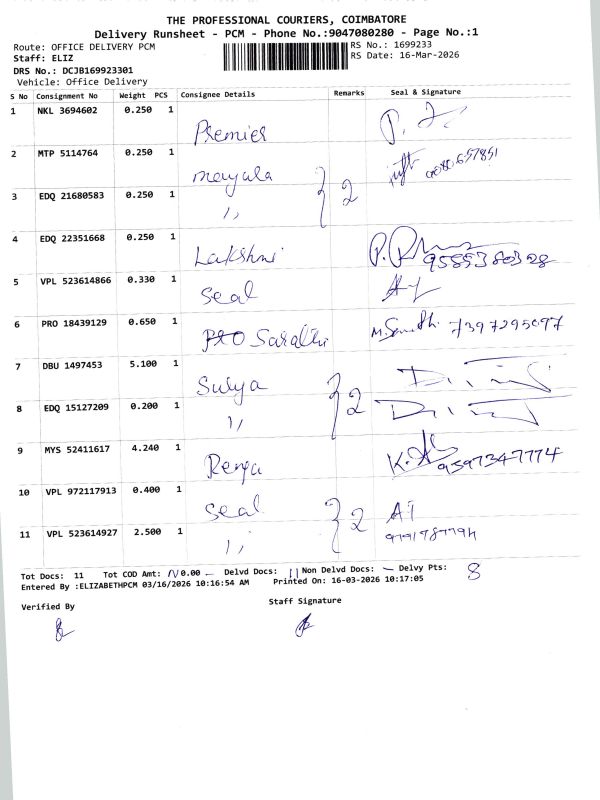 THE PROFESSIONAL COURIERS, COIMBATORE
Delivery Runsheet - PCM - Phone No.:9047080280 - Page No.:1
Route: OFFICE DELIVERY PCM RS No.: 1699233
Staff: ELIZ RS Date: 16-Mar-2026
DRS No.: DCJB169923301
Vehicle: Office Delivery
S No Consignment No Weight PCS Consignee Details Remarks Seal & Signature
1 NKL 3694602 0.250 1 Premier
2 MTP 5114764 0.250 1 mayula
3 EDQ 21680583 0.250 1 ,, } 2
4 EDQ 22351668 0.250 1 Lakshmi
5 VPL 523614866 0.330 1 Seal
6 PRO 18439129 0.650 1 Sarathi 7397295097
7 DBU 1497453 5.100 1 Surya
8 EDQ 15127209 0.200 1 ,, } 2
9 MYS 52411617 4.240 1 Renja 9597347774
10 VPL 972117913 0.400 1 Seal
11 VPL 523614927 2.500 1 ,, } 2
Tot Docs: 11 Tot COD Amt: 0.00 Delvd Docs: 11 Non Delvd Docs: - Delvy Pts: 8
Entered By :ELIZABETHPCM 03/16/2026 10:16:54 AM Printed On: 16-03-2026 10:17:05
Verified By Staff Signature